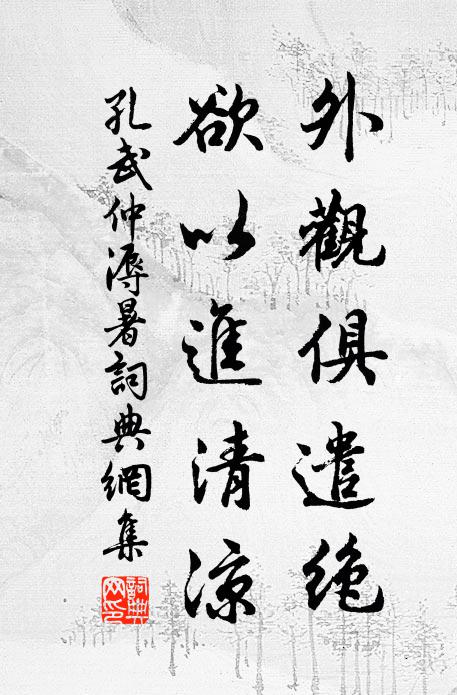 外觀俱遣絶
欲以進清涼
孔武仲溽暑詞典網集
詞典網印